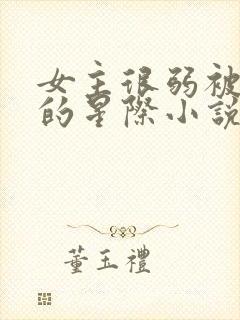 女主很弱被
的星際小說
董玉禮